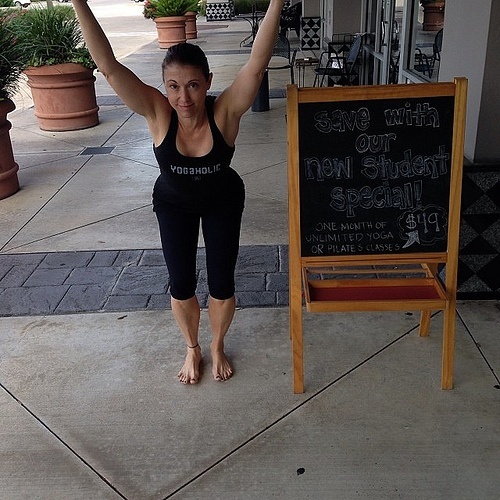 YOGAHOLIC
save with
our
new student
special!
$49
ONE MONTH OF
UNLIMITED YOGA
OR PILATES CLASSES